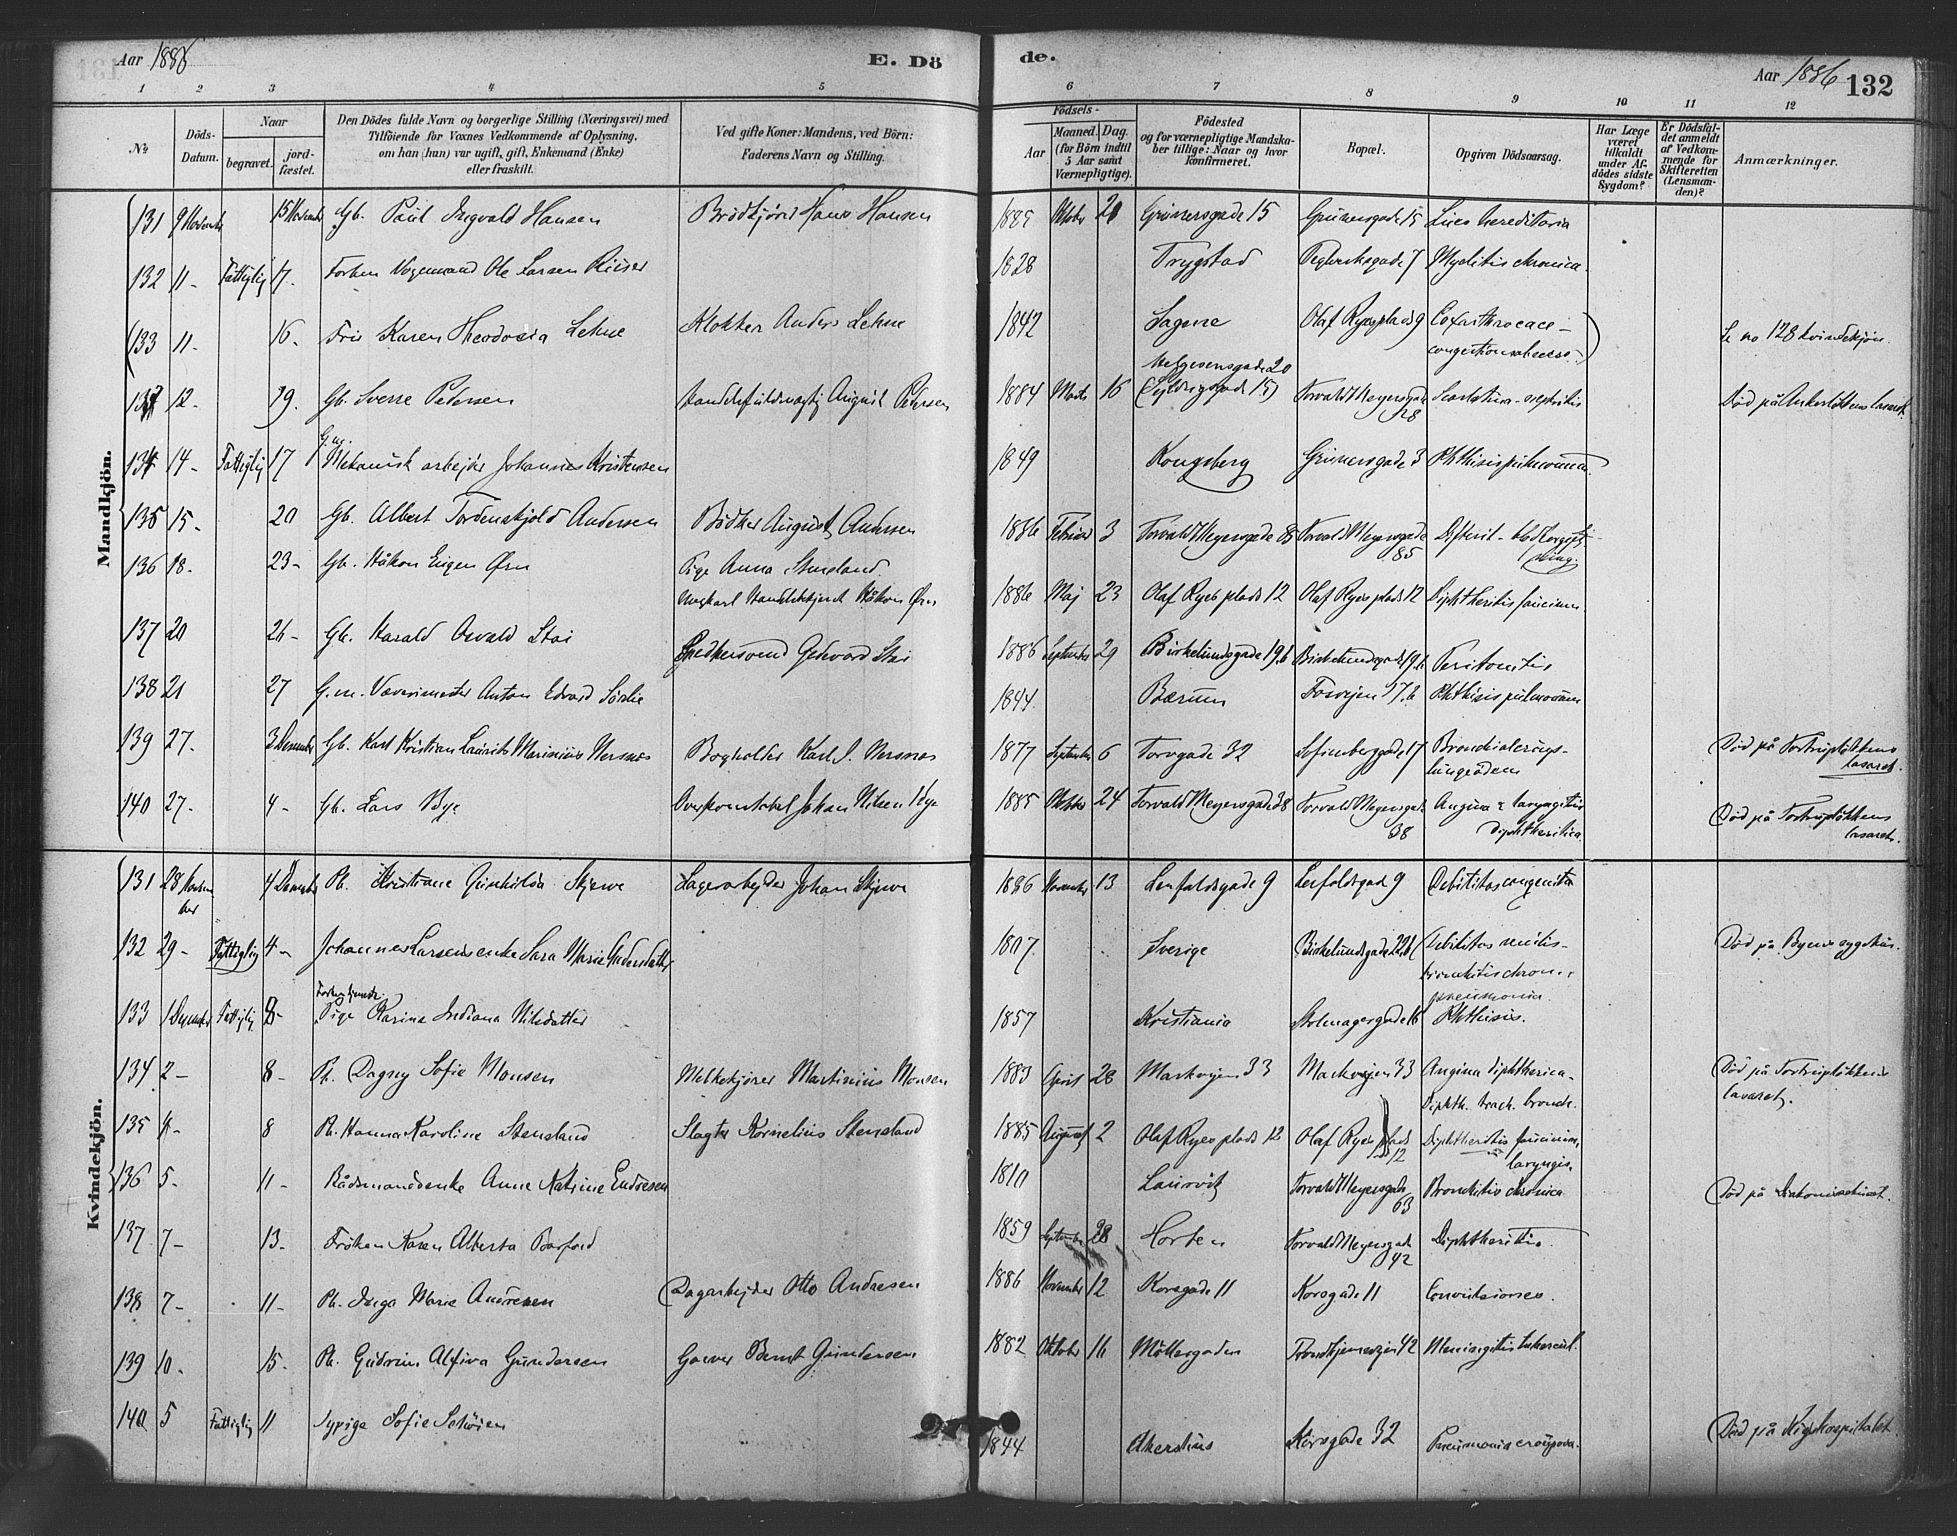 Aar 1886 E. Dö
de. Aar 1886 132
1 2 3 4 5 6 7 8 9 10 11 12
No.
Döds-Datum.
Naar
begravet.
jord-fæstet.
Den Dödes fulde Navn og borgerlige Stilling (Næringsvei) med
Tilföiende for Voxnes Vedkommende af Oplysning,
om han (hun) var ugift, gift, Enkemand (Enke)
eller fraskilt.
Ved gifte Koner: Mandens, ved Börn:
Faderens Navn og Stilling.
Födsels-
Aar
Maaned. Dag.
(for Börn indtil
5 Aar samt
Værnepligtige).
Födested
og for værnepligtige Mandska-
ber tillige: Naar og hvor
konfirmeret.
Bopæl.
Opgiven Dödsaarsag.
Har Læge
været
tilkaldt
under Af-
dödes sidste
Sygdom?
Er Dödsfal-
det anmeldt
af Vedkom-
mende for
Skifteretten
(Lensman-
den)?
Anmærkninger.
Mandkjön.
131 9 15 Gb. Paul Ingvald Hansen Brödkjörer Hans Hansen 1885 Oktober 21 Grünersgade 15 Grünersgade 15 Lues hereditaria
132 11- Fattiglig 17. Ole Larsen 1828 Trygstad 7 Myelitis chronica.
(133 11- 16- Karen Theodosia Lehne Klokker Anders Lehne 1842 Sagene Olaf Ryes plads 9 Coxarthrocace-
Se no 128 kvindekjön.
Helgesensgade 20
133 12- 19. Gb. Sverre Petersen August Petersen 1884 Marts 16 Torvald Meyersgade 28 Scarlatina - nephritis Död på Ankerløkkens lasaret
134 14- Fattiglig 17 G.m. Mekanisk arbejder Johannes Kristensen 1849 Kongsberg Grünersgade 3 Phthisis pulmonum
135 15- 20 Gb. Albert Tordenskjold Andersen Bødker August Andersen 1886 Februar 3 Torvald Meyersgade 85 Torvald Meyersgade 85 Difterit - blodforgift-
ning.
136 18- 23- Gb. Håkon Eugen Ørn Pige Anna Stensland
Ungkarl Handelsbetjent Håkon Ørn 1886 Maj 23 Olaf Ryes plads 12 Olaf Ryes plads 12 Diphtheritis faucium
137 20 26- Gb. Harald Osvald Stai Stai 1886 September 29 Birkelundsgade 19.b Birkelundsgade 19.b Peritonitis
138 21 27 G.m. Vævermester Anton Edvard Sörlie 1844. Bærum Fosvejen 17.b Phthisis pulmonum
139 27. 3 December Gb. Karl Kristian Laurits Marinius Nersnæs Bogholder Karl J. Nersnæs 1877 September 6 Torvgade 32 Sofienberggade 17 Död på Fortrinsløkkens
lasaret.
140 27- 4- Gb. Lars Bye Overkonstabel Johan Nilsen Bye 1885 Oktober 24 Torvald Meyersgade 38 Torvald Meyersgade 38 Angina & laryngitis
diphtheritica Död på Fortrinsløkkens
lasaret.
Kvindekjön.
131 28 November 4 December Pb. Kristiane Gunhilda Skjerve Lagerarbejder Johan Skjerve 1886 November 13 9 9 Debilitas congenita
132 29- Fattiglig 4- Johannes Larsens enke Sara Marie Andersdatter 1807. Sverige Birkelundsgade 22b Debilitas senilis-
bronkitis chron.,
pneumonia. Död på Byens sygehus.
133 1 December Fattiglig 8- Pige Karine Indiana Nilsdatter 1857 Kristiania Phthisis.
134 2- 8- Pb. Dagny Sofie Monsen Melkekjörer Martinius Monsen 1883 April 28 Markvejen 33 Markvejen 33 Angina diphtherica-
Diphth. trach. bronch. Död på Fortrinsløkkens
lasaret.
135 4- 8 Pb. Hanna Karoline Stensland Slagter Kornelius Stensland 1885 August 2 Olaf Ryes plads 12 Olaf Ryes plads 12 Diphtheritis faucium,
laryngis.
136 5- 11- Rådsmandsenke Anne Katrine Endresen 1810 Laurvik Torvald Meyersgade 63 Bronkitis chronica Död på Diakonissehuset.
137 7- 13- Fröken Karen Alberta Barford 1859 September 28 Horten Torvald Meyersgade 42 Diphtheritis
138 7- 11- Pb. Inga Marie Andresen Dagarbejder Otto Andresen 1886 November 12 Korsgade 11 Korsgade 11 Convulsiones.
139 10- 15- Pb. Gudrun Alfiva Gundersen Garver Bernt Gundersen 1882 Oktober 16 Möllergaden Trondhjemsvejen 42 Meningitis tubercul.
140 5 Fattiglig 11 Sypige Sofie Schöien 1844 Akershus Korsgade 32 Pneumonia crouposa. Död på Rigshospitalet.